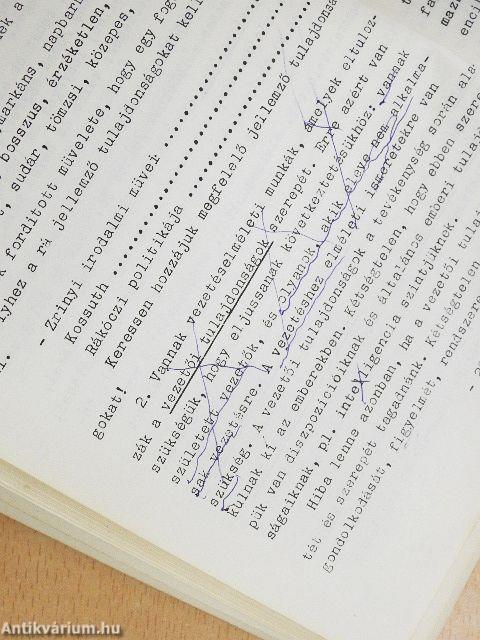 arkáns, napbarn
bosszus, érzéketlen,
, sudár, tömzsi, közepes,
k fordított művelete, hogy egy fog
lyhez a rá jellemző tulajdonságokat kell
- Zrinyi irodalmi művei
Kossuth
Rákóczi politikája
Keressen hozzájuk megfelelő jellemző tulajdonsá-
gokat!
2. Vannak vezetéselméleti munkák, amelyek eltuloz-
zák a vezetői tulajdonságok szerepét. Erre azért van
szükségük, hogy eljussanak következtetésükhöz: vannak
született vezetők, és olyanok, akik eleve nem alkalma-
sak vezetésre. A vezetéshez elméleti ismeretekre van
szükség. A vezetői tulajdonságok a tevékenység során ala-
kulnak ki az emberekben. Kétségtelen, hogy ebben szere-
pük van diszpozicióiknak és általános emberi tulajdon-
ságaiknak, pl. intelligencia szintjüknek.
Hiba lenne azonban, ha a vezetői tulaj
tét és szerepét tagadnánk. Kétségtelen
gondolkodását, figyelmét, rendszere
Antikvárium.hu